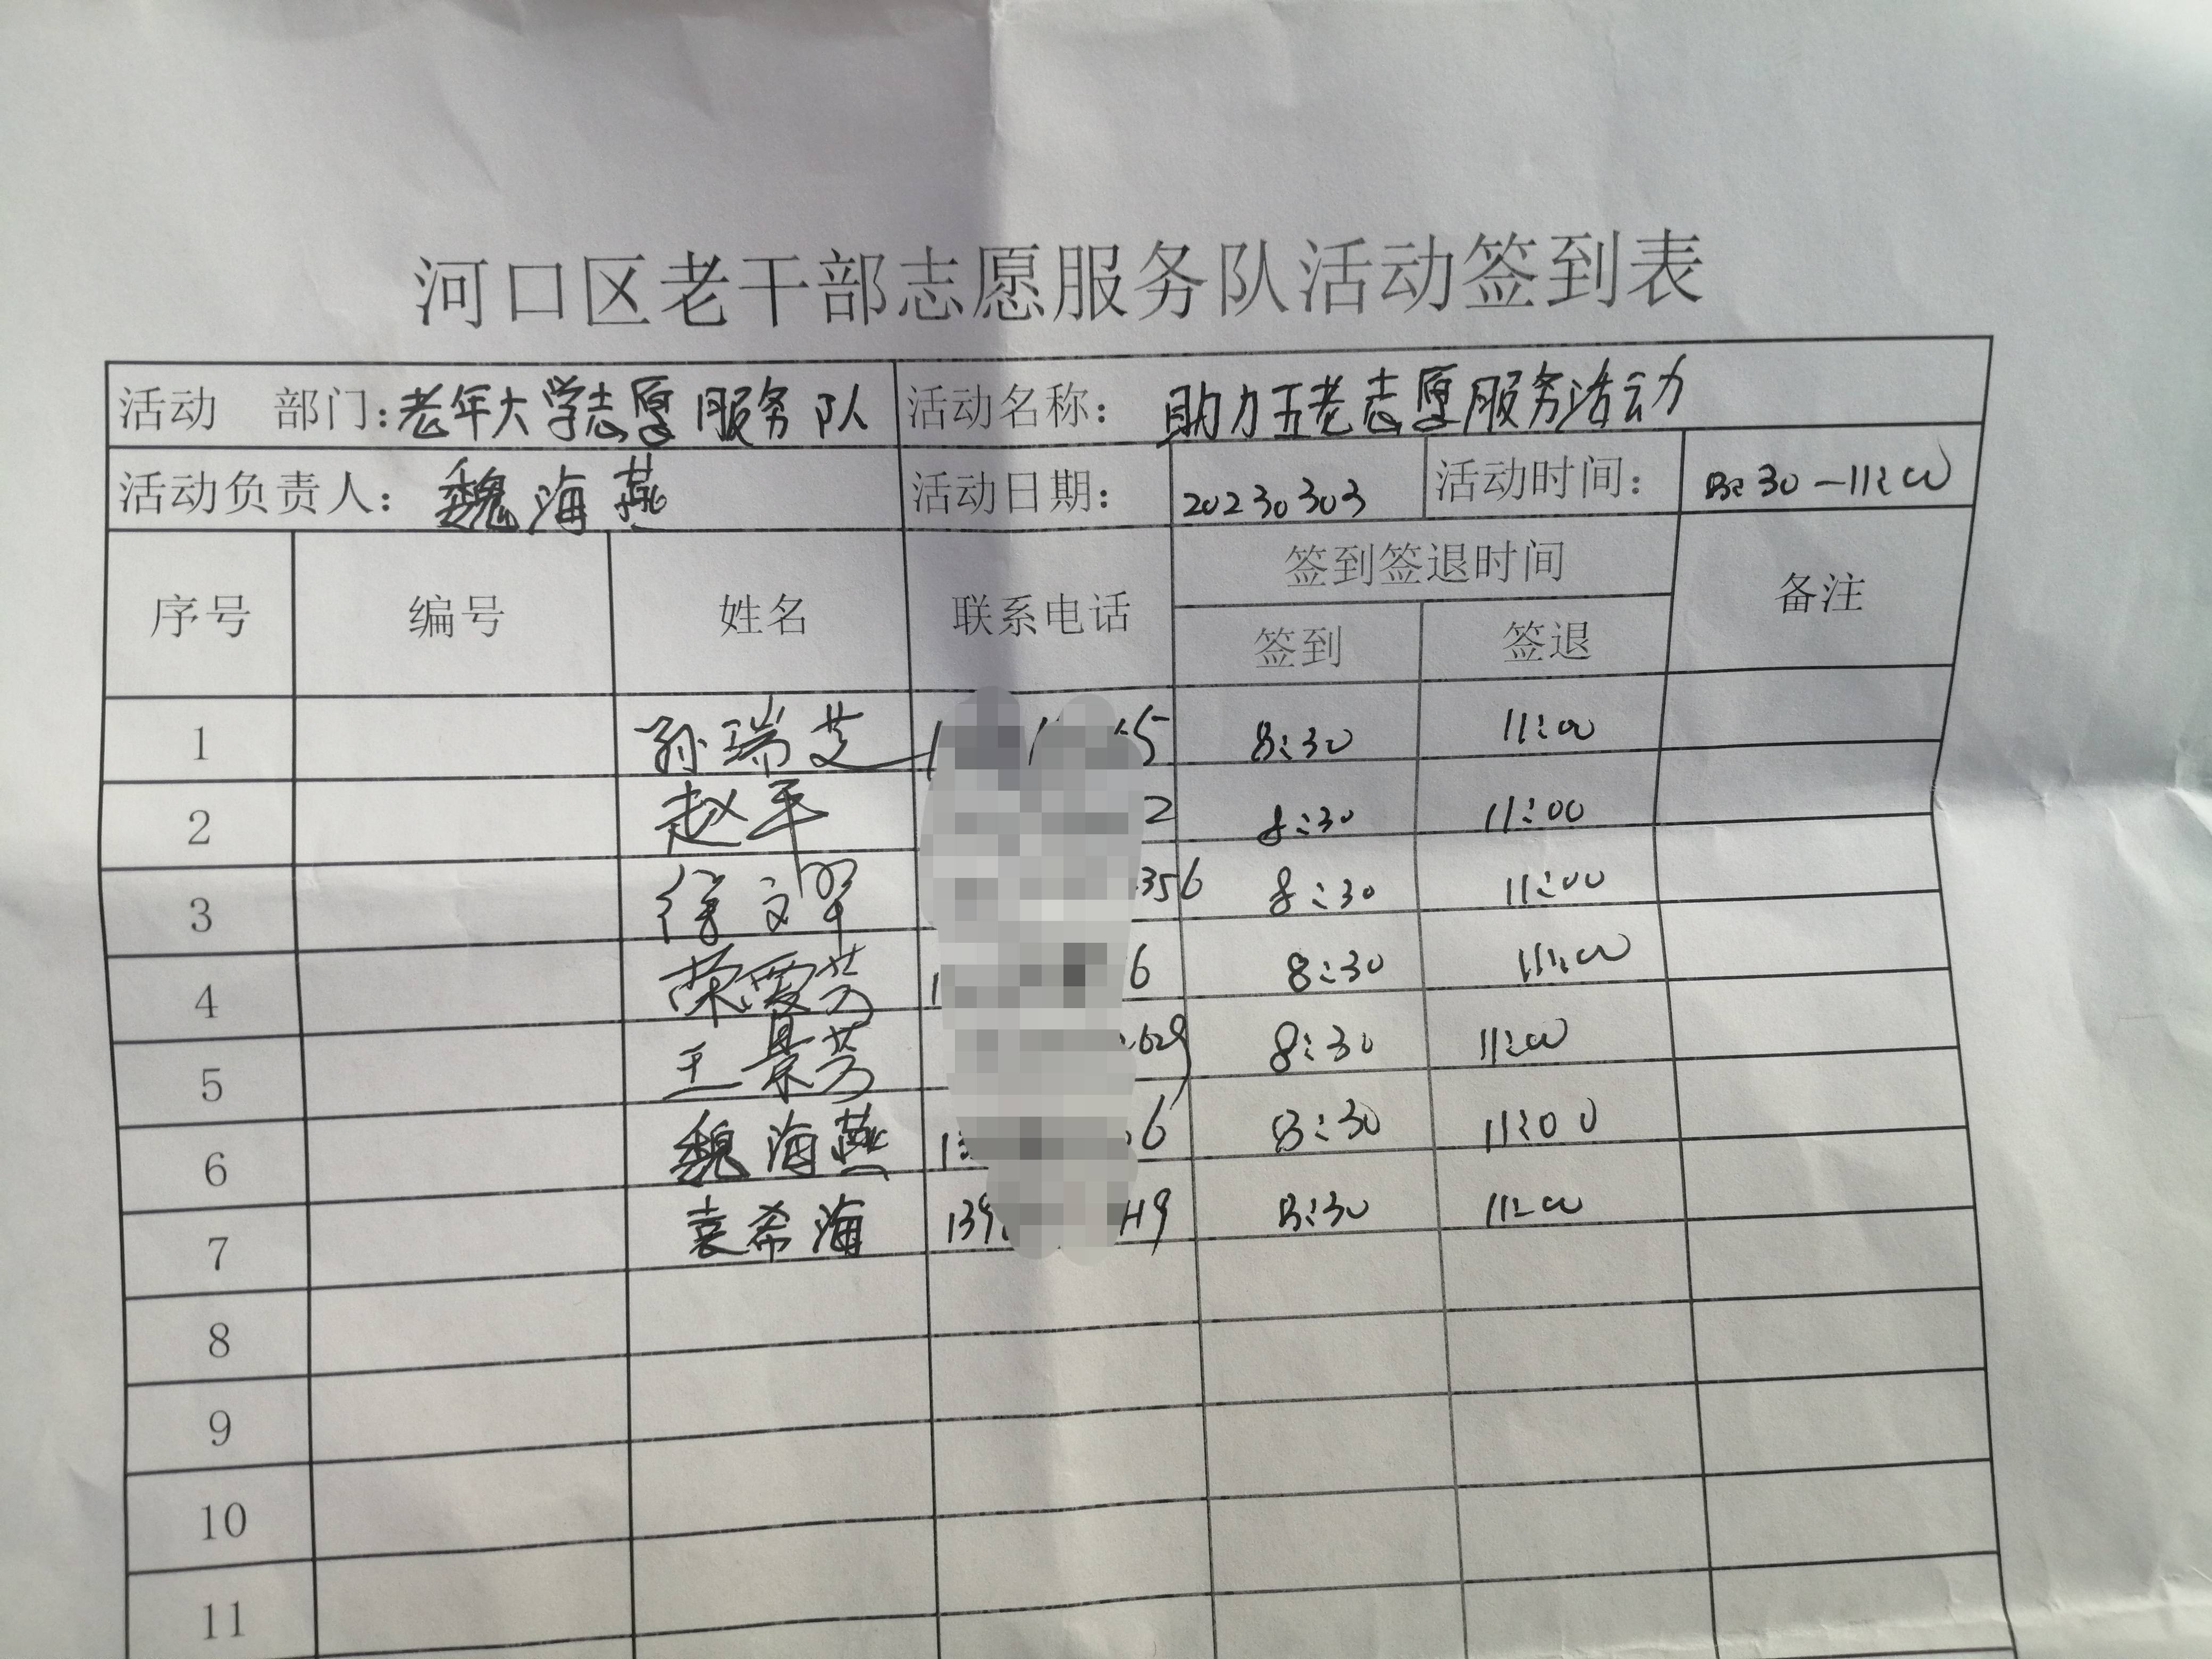 河口区老干部志愿服务队活动签到表
活动 部门：老年大学志愿服务队 活动名称： 助力五老志愿服务活动
活动负责人： 魏海燕 活动日期： 20230303 活动时间： 8:30-11:00
序号 编号 姓名 联系电话 签到签退时间 备注
签到 签退
1 孙瑞芝 8:30 11:00
2 赵平 2 8:30 11:00
3 徐文翠 356 8:30 11:00
4 荣霞芳 6 8:30 11:00
5 王景芳 629 8:30 11:00
6 魏海燕 6 8:30 11:00
7 袁希海 139 8:30 11:00
8
9
10
11